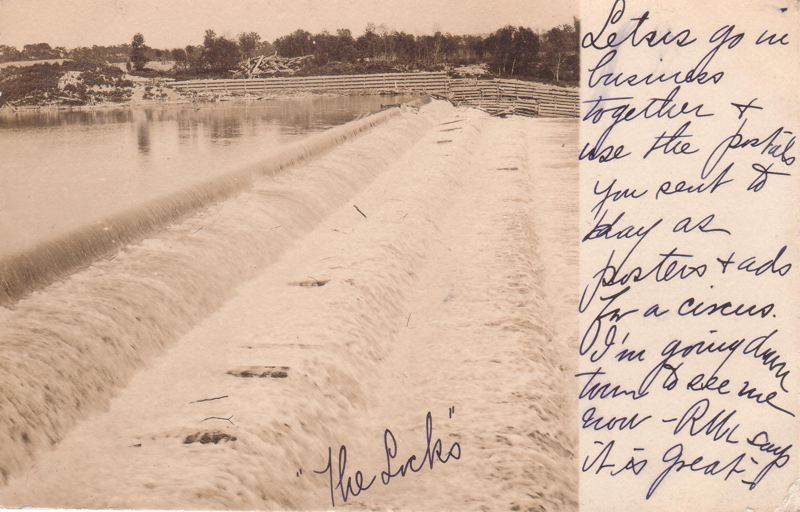 Lets go in
business
together &
use the postals
you sent to
day as
posters & ads
for a circus.
I'm going down
town to see me
now - says
it is great -
"The Locks"